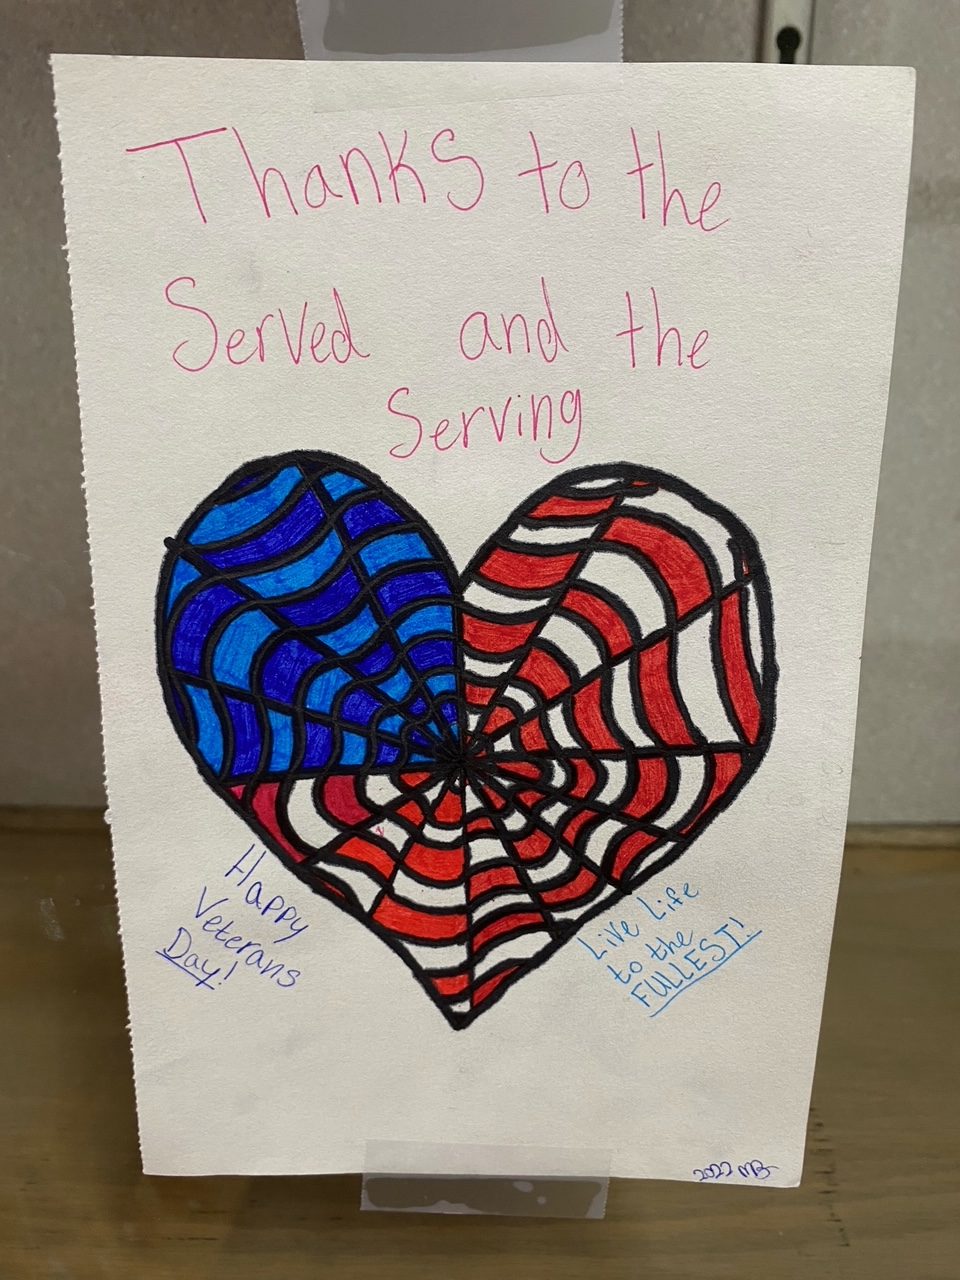 Thanks to the
Served and the
Serving
Happy
Veterans
Day!
Live Life
to the
FULLEST!
2022 MB